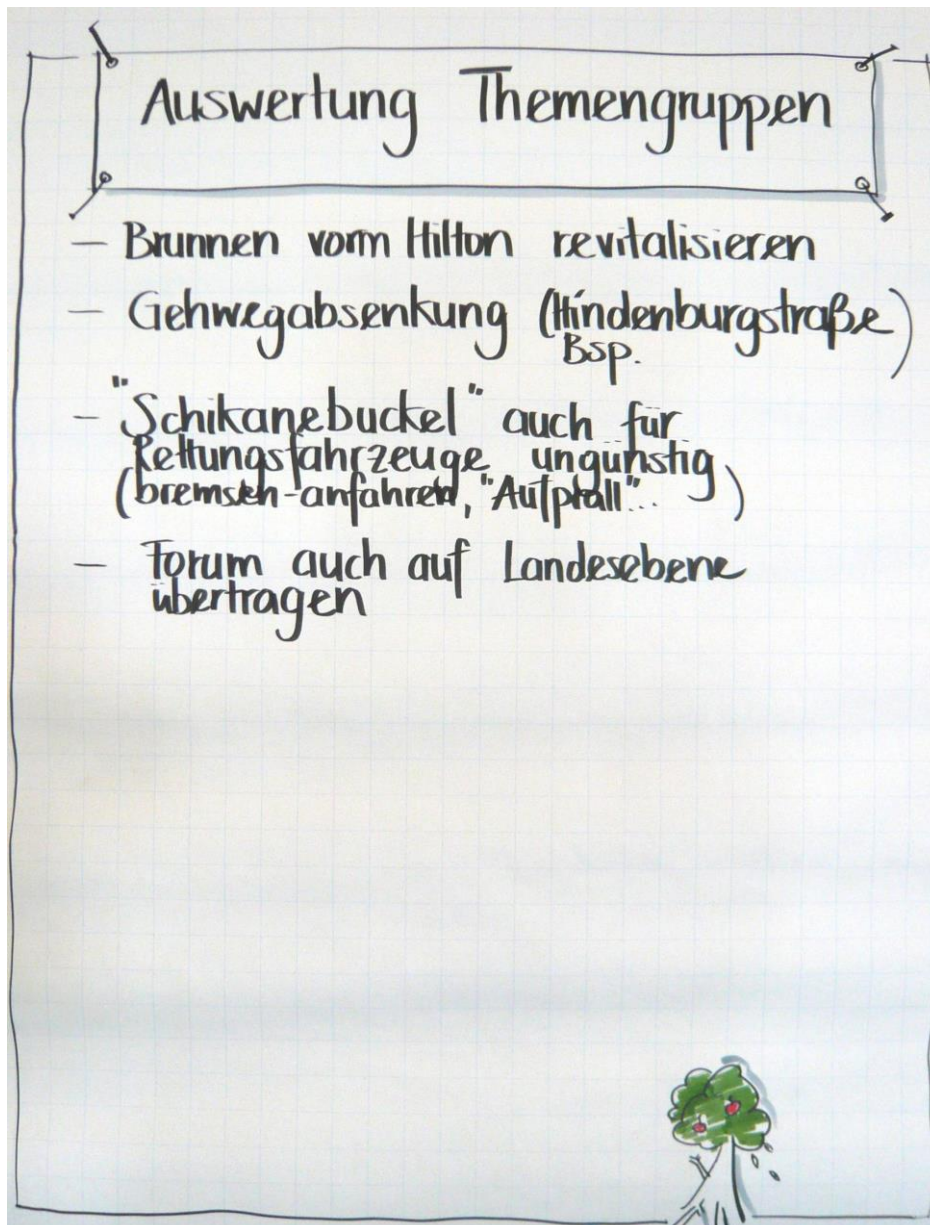 Auswertung Themengruppen
– Brunnen vorm Hilton revitalisieren
– Gehwegabsenkung (Hindenburgstraße)
Bsp.
– "Schikanebuckel" auch für
Rettungsfahrzeuge ungünstig
(bremsen-anfahren, "Aufprall"...)
– Forum auch auf Landesebene
übertragen